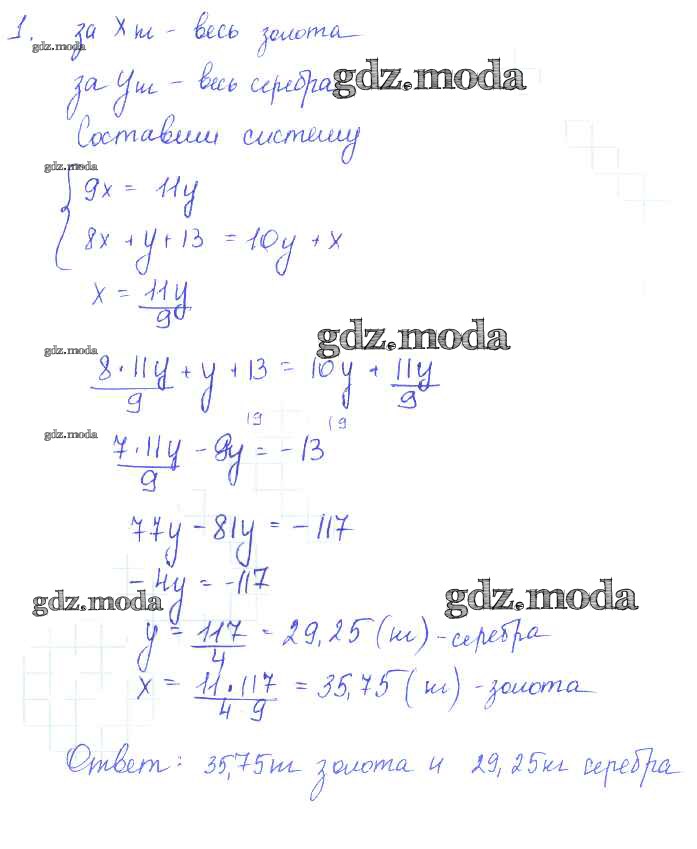 1. за x кг - весь золота
gdz.moda
за y кг - весь серебра
gdz.moda
Составим систему
gdz.moda
9x = 11y
8x + y + 13 = 10y + x
x = 11y/9
gdz.moda
gdz.moda
8·11y/9 + y + 13 = 10y + 11y/9
gdz.moda
7·11y/9 - 9y |9 = -13 |9
77y - 81y = -117
-4y = -117
gdz.moda
gdz.moda
y = 117/4 = 29,25 (кг) - серебра
x = 11·117/4 9 = 35,75 (кг) - золота
Ответ: 35,75кг золота и 29,25кг серебра